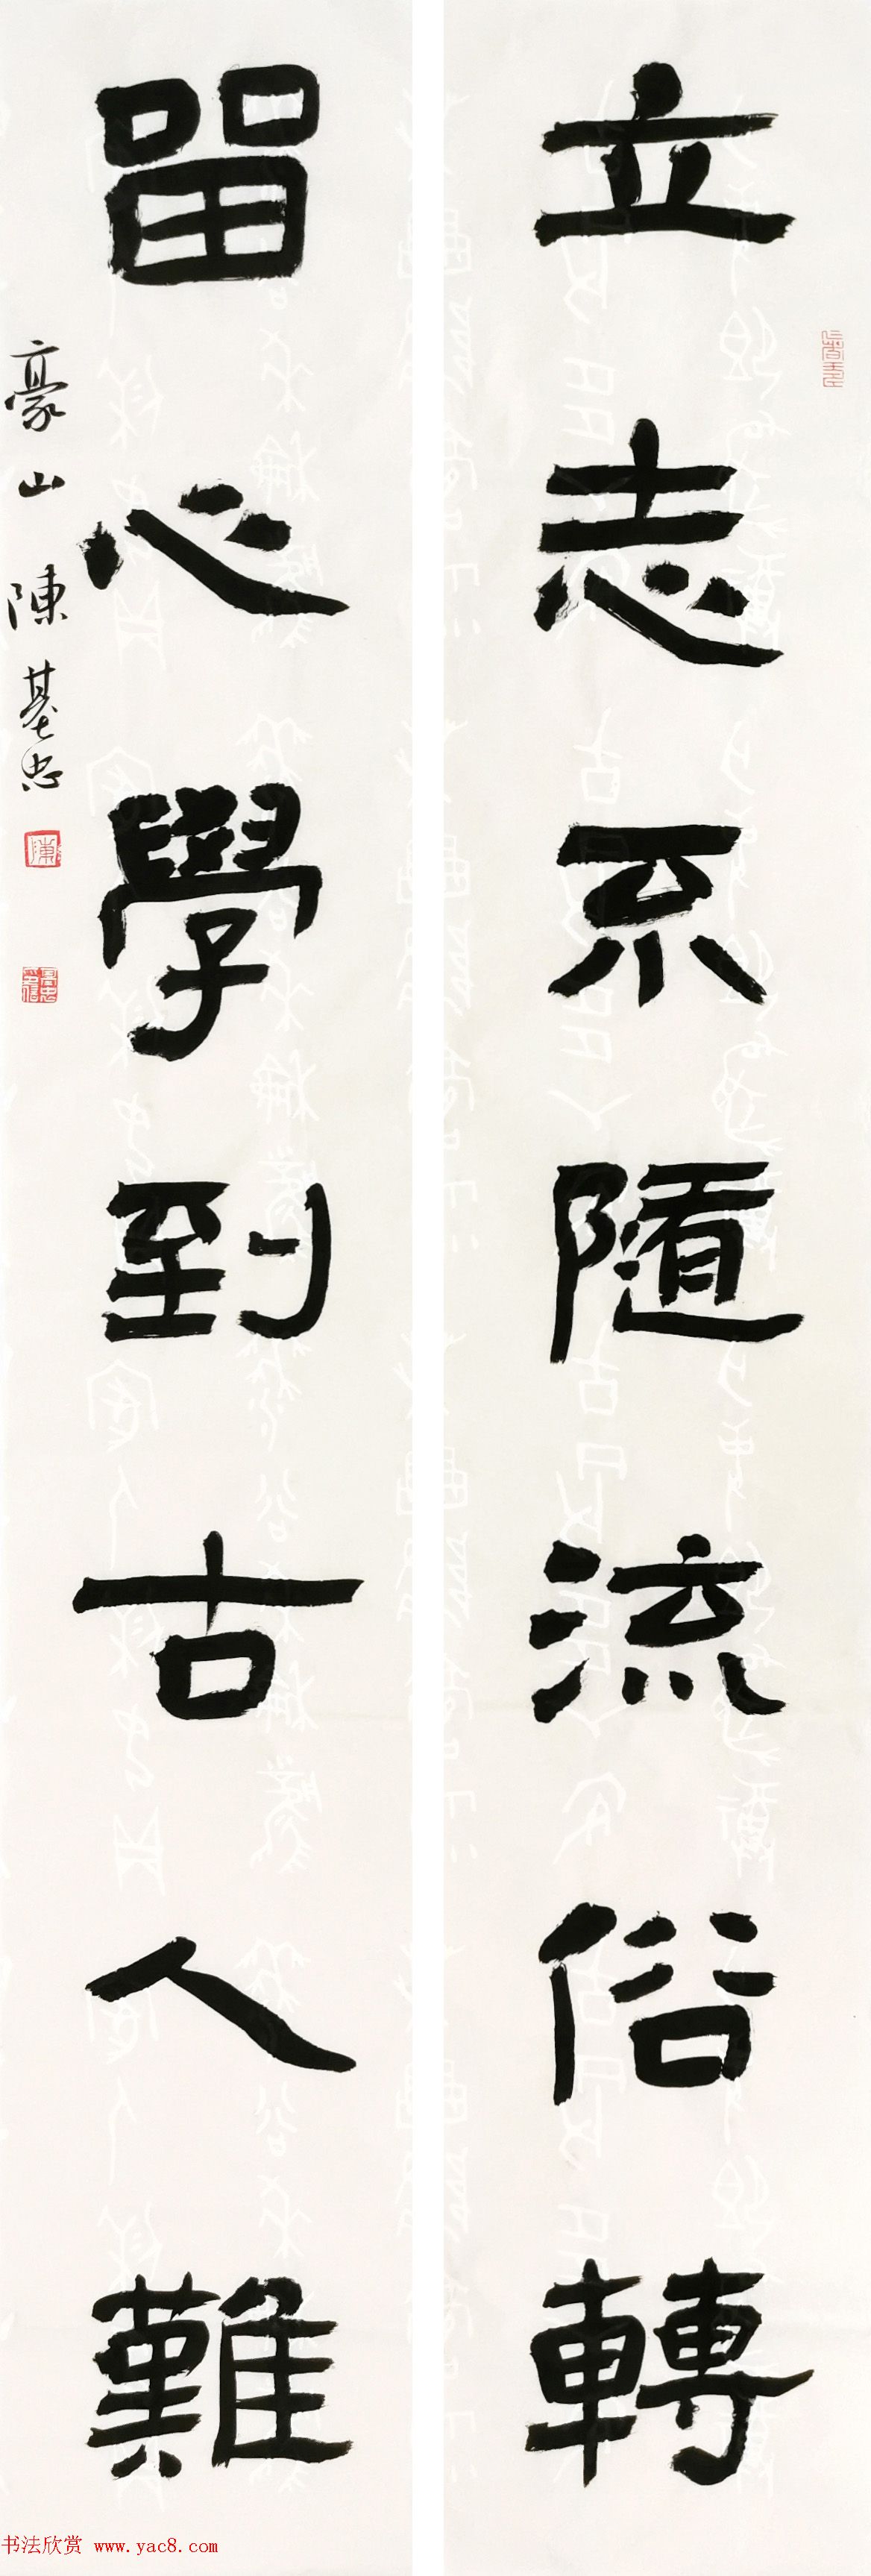 立志不隨流俗轉
留心學到古人難
豪山 陳基忠
书法欣赏 www.yac8.com